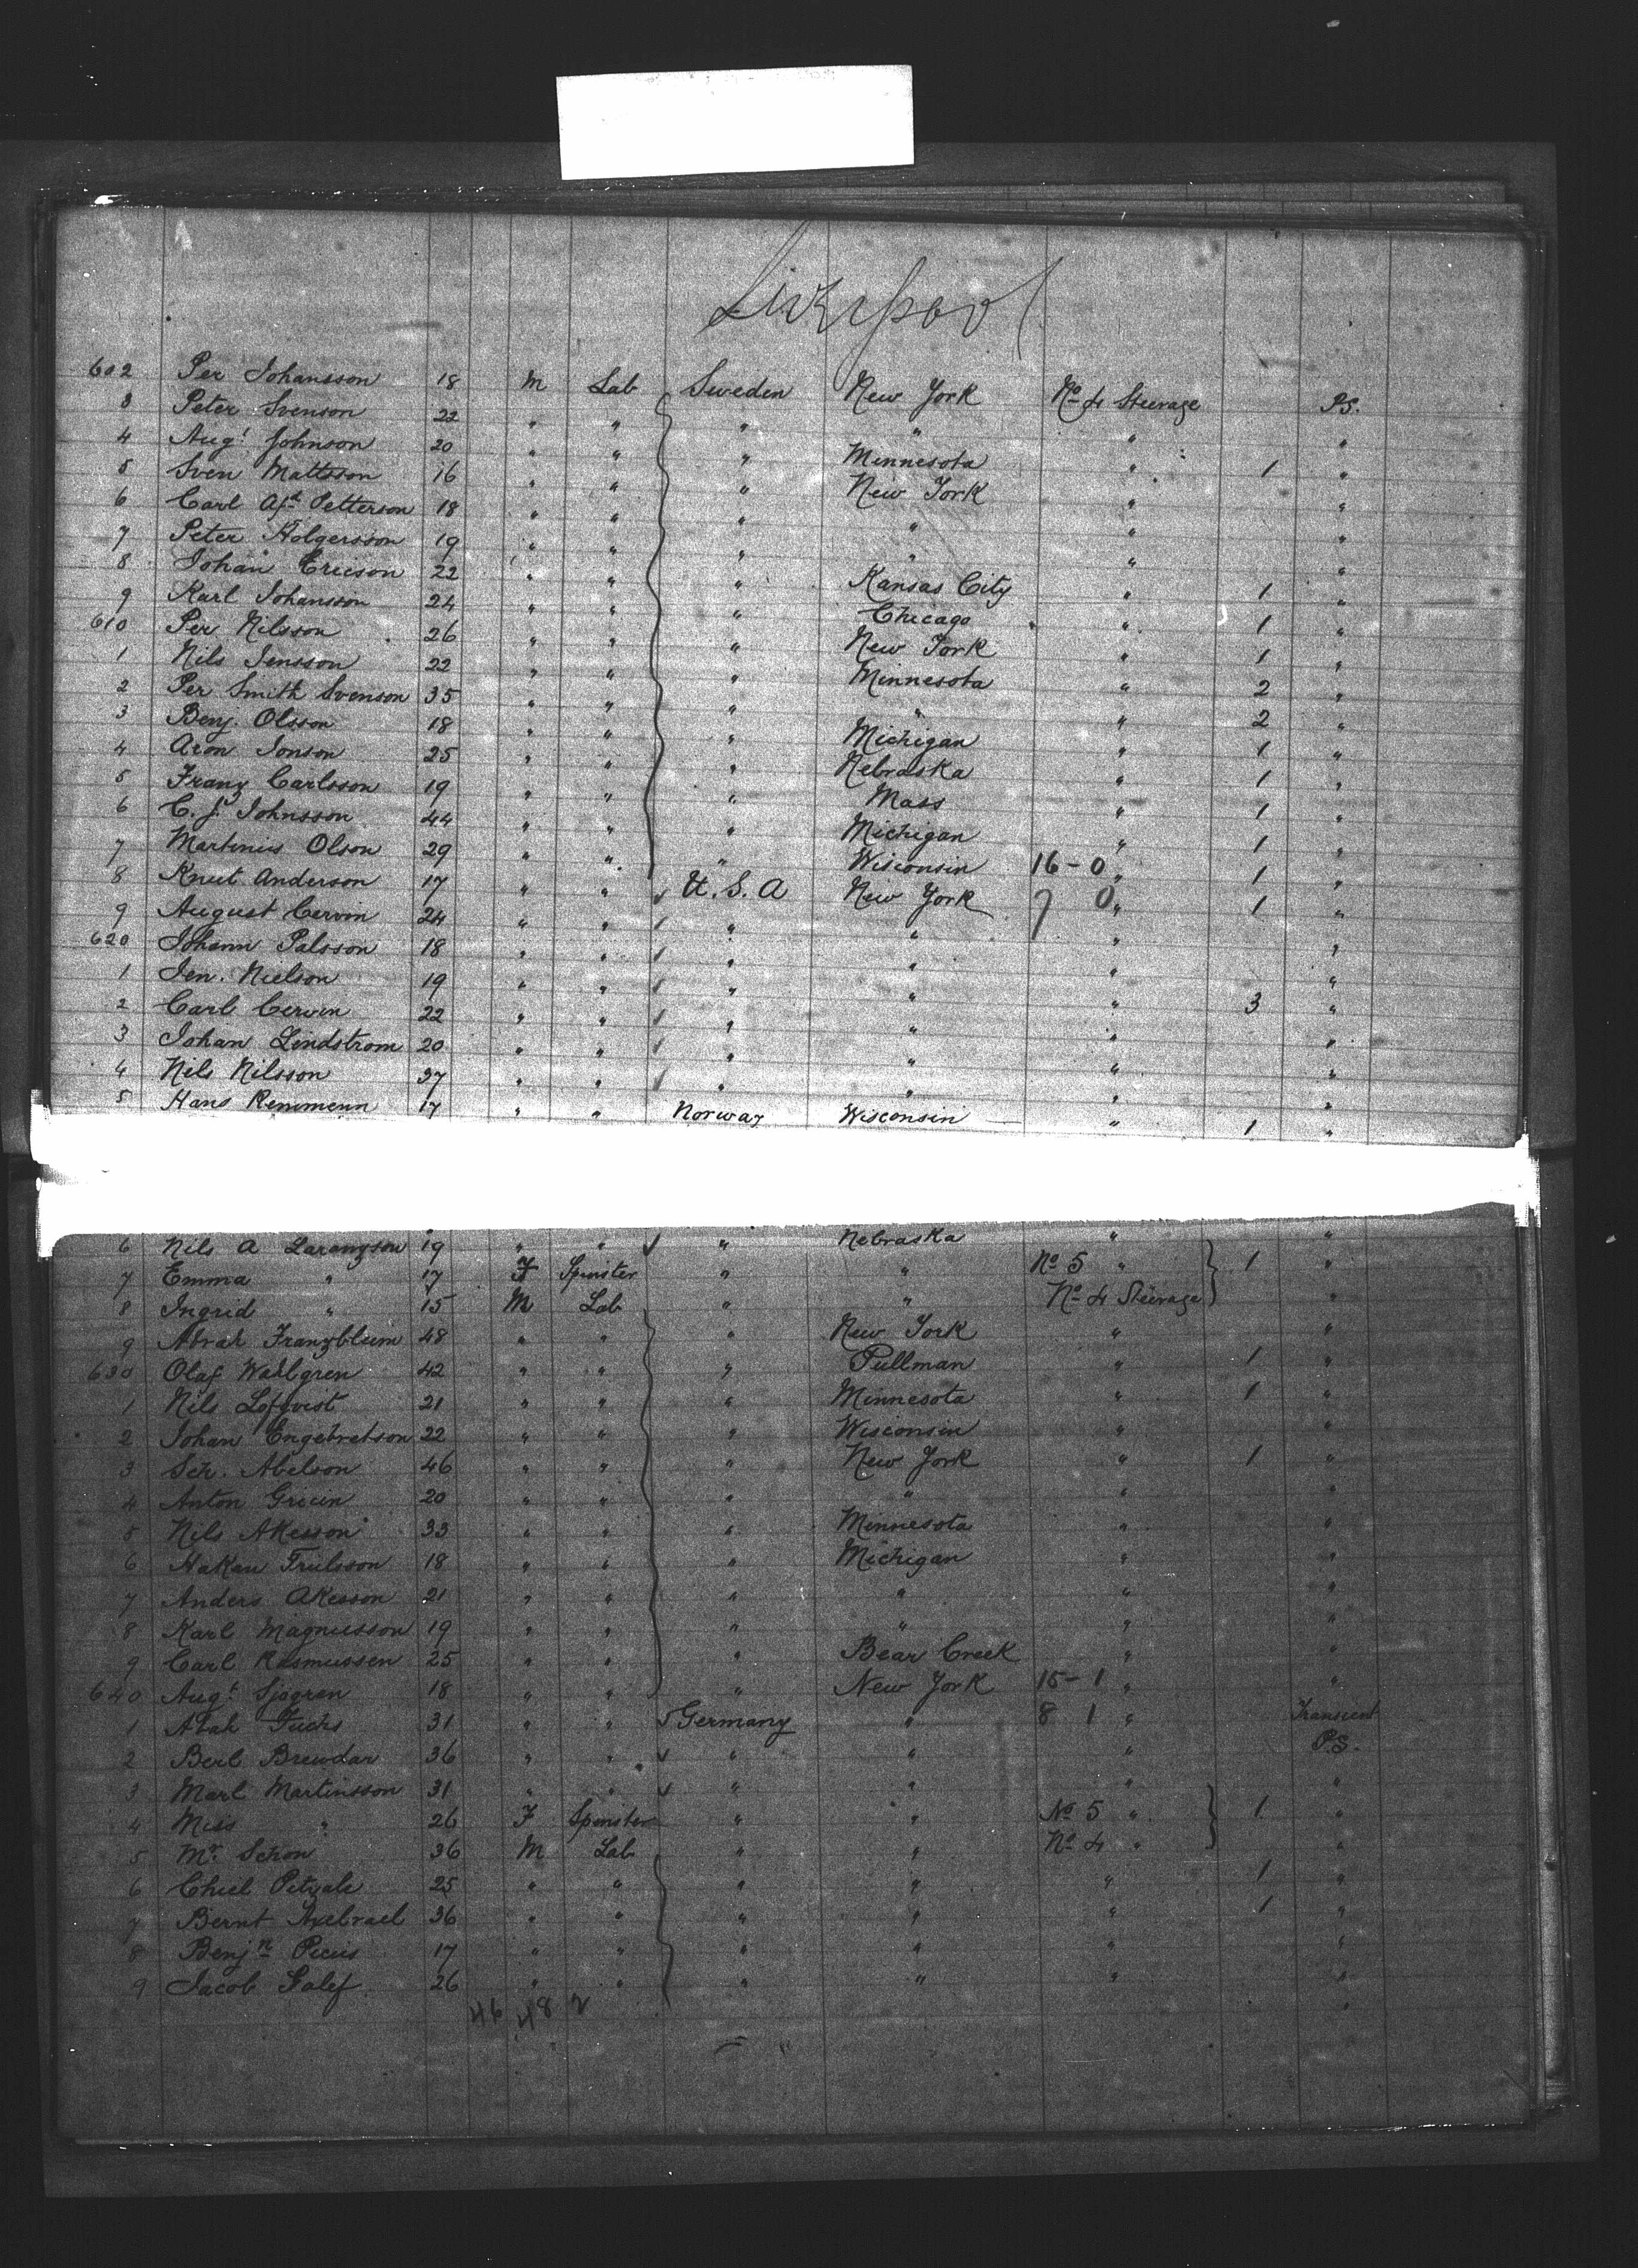 Liverpool
602 Per Johansson 18 M Lab Sweden New York No 4 Steerage P.S.
3 Peter Svenson 22 " " " " " "
4 Augt Johnson 20 " " " Minnesota " 1 "
5 Sven Mattsson 16 " " " New York " "
6 Carl Petterson 18 " " " " " "
7 Peter Holgersson 19 " " " " " "
8 Johan Ericson 22 " " " Kansas City " 1 "
9 Karl Johansson 24 " " " Chicago " 1 "
610 Per Nilsson 26 " " " New York " 1 "
1 Nils Jensson 22 " " " Minnesota " 2 "
2 Per Smith Svenson 35 " " " " " 2 "
3 Benj. Olsson 18 " " " Michigan " 1 "
4 Aron Jonson 25 " " " Nebraska " 1 "
5 Franz Carlsson 19 " " " Mass " 1 "
6 C. J. Johnsson 44 " " " Michigan " 1 "
7 Martinus Olson 29 " " " Wisconsin 16-0 " 1 "
8 Knut Anderson 17 " " U.S.A New York 7 0 " 1 "
9 August Cervin 24 " " " " " "
620 Johann Palsson 18 " " " " " "
1 Jen. Nielson 19 " " " " " 3 "
2 Carl Cervin 22 " " " " " "
3 Johan Lindstrom 20 " " " " " "
4 Nils Nilsson 37 " " " " " "
5 Hans 17 " " Norway Wisconsin " 1 "
6 Nils A Larangson 19 " " " Nebraska " "
7 Emma " 17 F Spinster " " No 5 " 1 "
8 Ingrid " 15 M Lab " " No 4 Steerage "
9 Abrah Franzblum 48 " " " New York " "
630 Olaf Wahlgren 42 " " " Pullman " 1 "
1 Nils Lofqvist 21 " " " Minnesota " 1 "
2 Johan Engebretson 22 " " " Wisconsin " "
3 Sch. Abelson 46 " " " New York " 1 "
4 Anton Gricen 20 " " " " " "
5 Nils Akesson 33 " " " Minnesota " "
6 Hakan Trulsson 18 " " " Michigan " "
7 Anders Akesson 21 " " " " " "
8 Karl Magnusson 19 " " " " " "
9 Carl Rasmussen 25 " " " Bear Creek " "
640 Augt Sjogren 18 " " " New York 15-1 " "
1 Abah Fuchs 31 " " Germany " 8 1 " Transient
2 Berl Brewdar 36 " " " " " P.S.
3 Marl Martinsson 31 " " " " " "
4 Miss " 26 F Spinster " " No 5 " 1 "
5 Mr. Schon 36 M Lab " " No 4 " "
6 Chiel 25 " " " " " 1 "
7 Bernt Axelrael 36 " " " " " 1 "
8 Benjn 17 " " " " " "
9 Jacob 26 " " " " " "
46 48 2